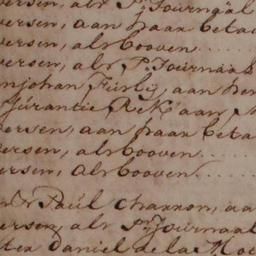 versen, als P:r Journaal
versen, aan haar beta
versen, als booven
versen, als P:r Journaal
Johan aan hem
Rek aan
versen, aan haar beta
versen, als booven
versen, als booven
Paul Charron, aa
versen, als P:r Journaal
ter Daniel de la